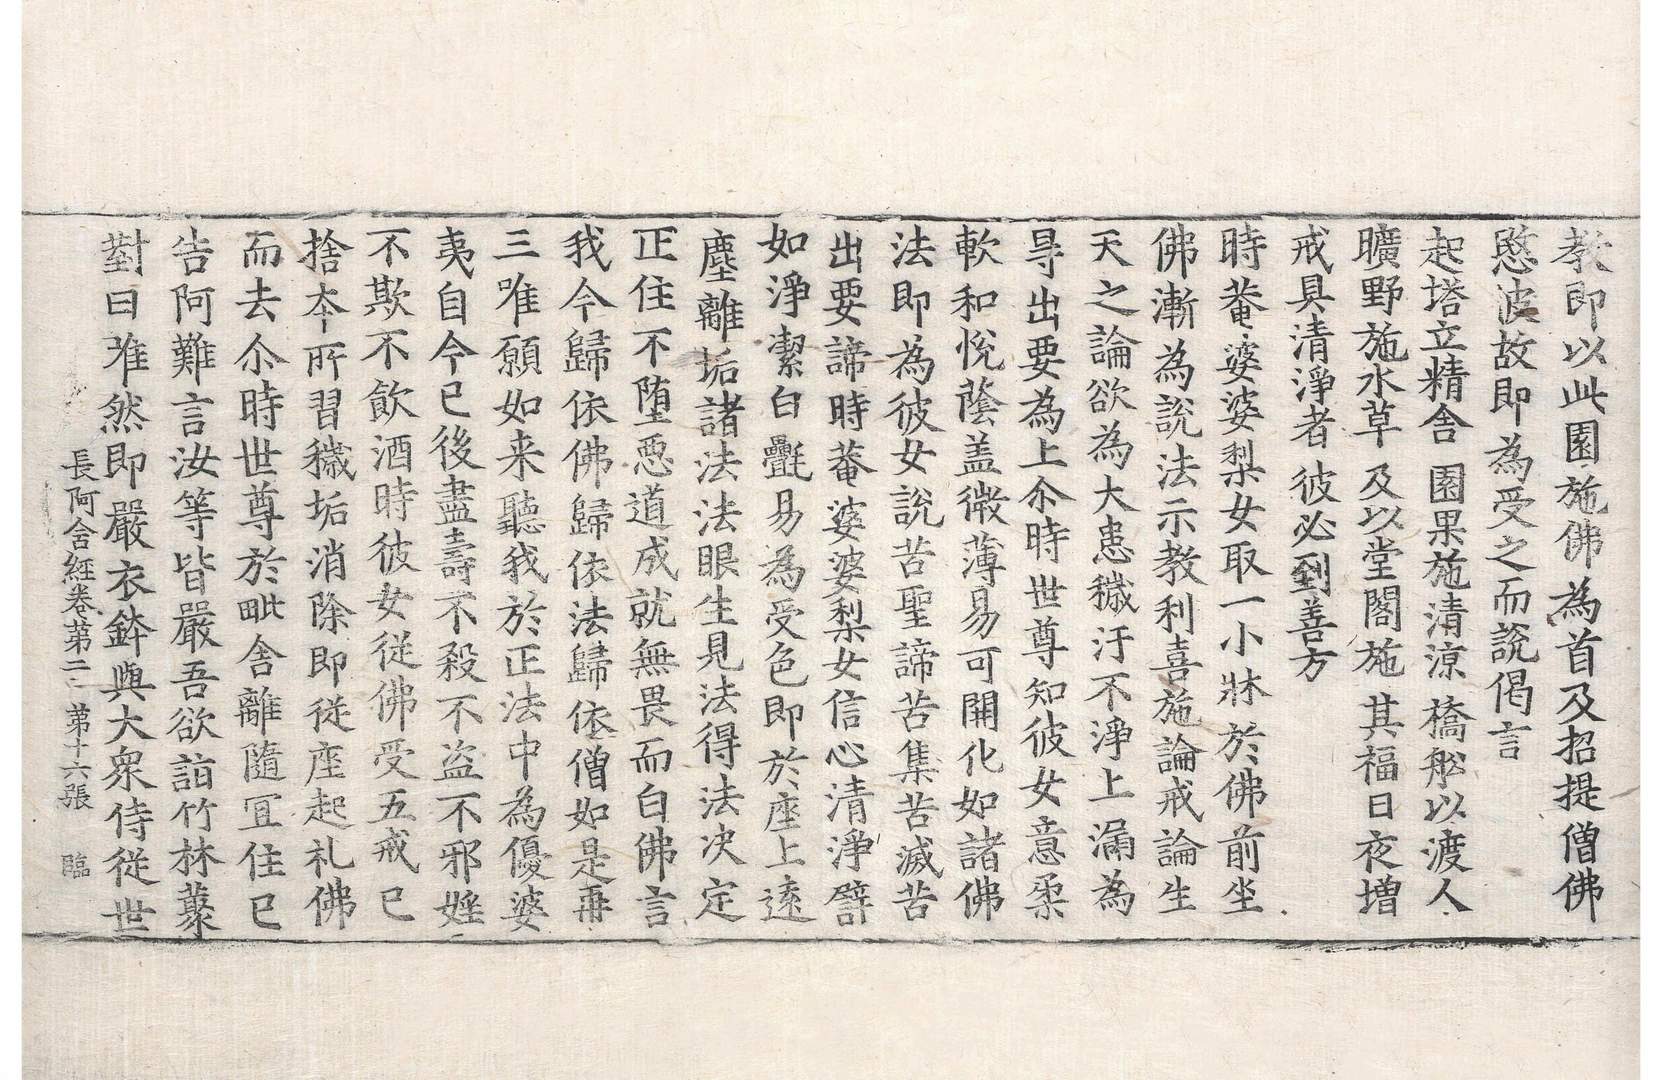 教即以此園施佛為首及招提僧佛
愍彼故即為受之而說偈言
起塔立精舍 園果施清涼 橋舩以渡人
曠野施水草 及以堂閣施 其福日夜增
戒具清淨者 彼必到善方
時菴婆婆梨女取一小牀於佛前坐
佛漸為說法示教利喜施論戒論生
天之論欲為大患穢汙不淨上漏為
㝵出要為上尒時世尊知彼女意柔
軟和悅蔭盖微薄易可開化如諸佛
法即為彼女說苦聖諦苦集苦滅苦
出要諦時菴婆婆梨女信心清淨譬
如淨潔白㲲易為受色即於座上遠
塵離垢諸法法眼生見法得法決定
正住不墮惡道成就無畏而白佛言
我今歸依佛歸依法歸依僧如是再
三唯願如来聽我於正法中為優婆
夷自今已後盡壽不殺不盜不邪婬
不欺不飲酒時彼女従佛受五戒已
捨夲所習穢垢消除即従座起礼佛
而去尒時世尊於毗舍離隨冝住已
告阿難言汝等皆嚴吾欲詣竹林藂
對曰唯然即嚴衣鉢與大眾侍従世
長阿含經卷第二 第十六張 臨